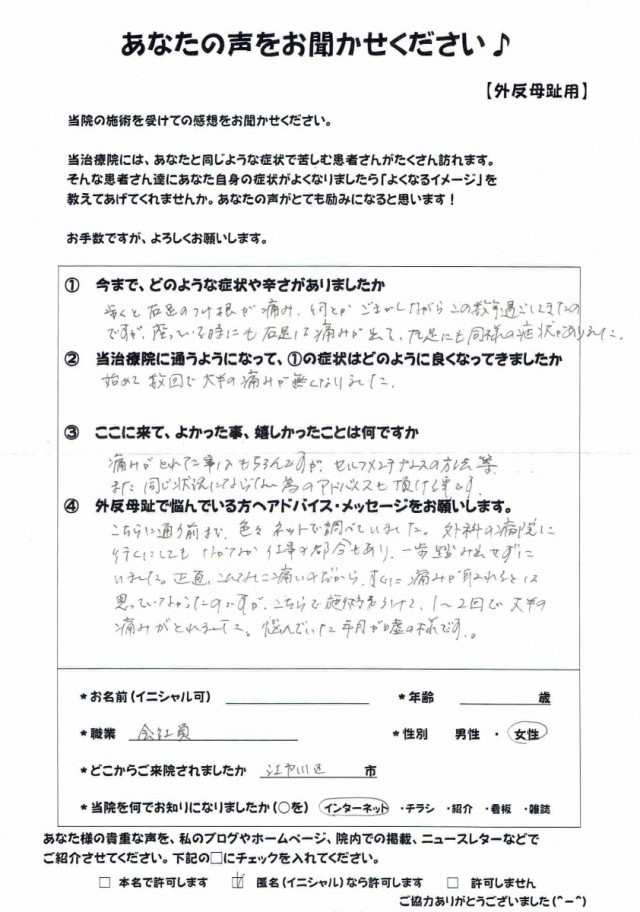 あなたの声をお聞かせください♪
【外反母趾用】
当院の施術を受けての感想をお聞かせください。
当治療院には、あなたと同じような症状で苦しむ患者さんがたくさん訪れます。
そんな患者さん達にあなた自身の症状がよくなりましたら「よくなるイメージ」を
教えてあげてくれませんか。あなたの声がとても励みになると思います！
お手数ですが、よろしくお願いします。
① 今まで、どのような症状や辛さがありましたか
歩くと右足のつけ根が痛み、何とかごまかしながらこの数年過ごしてきたの
ですが、座っている時にも右足は痛みが出て、左足にも同様の症状がありました。
② 当治療院に通うようになって、①の症状はどのように良くなってきましたか
始めて数回で大半の痛みが無くなりました。
③ ここに来て、よかった事、嬉しかったことは何ですか
痛みがとれた事はもちろんですが、セルフメンテナンスの方法等
また同じ状況にならない為のアドバイスも頂ける事です。
④ 外反母趾で悩んでいる方へアドバイス・メッセージをお願いします。
こちらに通う前まで、色々ネットで調べていました。外科の病院に
行くにしても なかなか仕事の都合もあり、一歩踏み出せずに
いました。正直、こんなに痛いのだから、すぐに痛みが取れるとは
思っていなかったのですが、こちらで施術を受けて、1～2回で大半の
痛みがとれました。悩んでいた年月が嘘の様です。
*お名前(イニシャル可)
*年齢 歳
*職業 会社員
*性別 男性 ・ 女性
*どこからご来院されましたか 江戸川区 市
*当院を何でお知りになりましたか(○を) インターネット ・チラシ ・紹介 ・看板 ・雑誌
あなた様の貴重な声を、私のブログやホームページ、院内での掲載、ニュースレターなどで
ご紹介させてください。下記の□にチェックを入れてください。
□ 本名で許可します ☑ 匿名(イニシャル)なら許可します □ 許可しません
ご協力ありがとうございました(^-^)